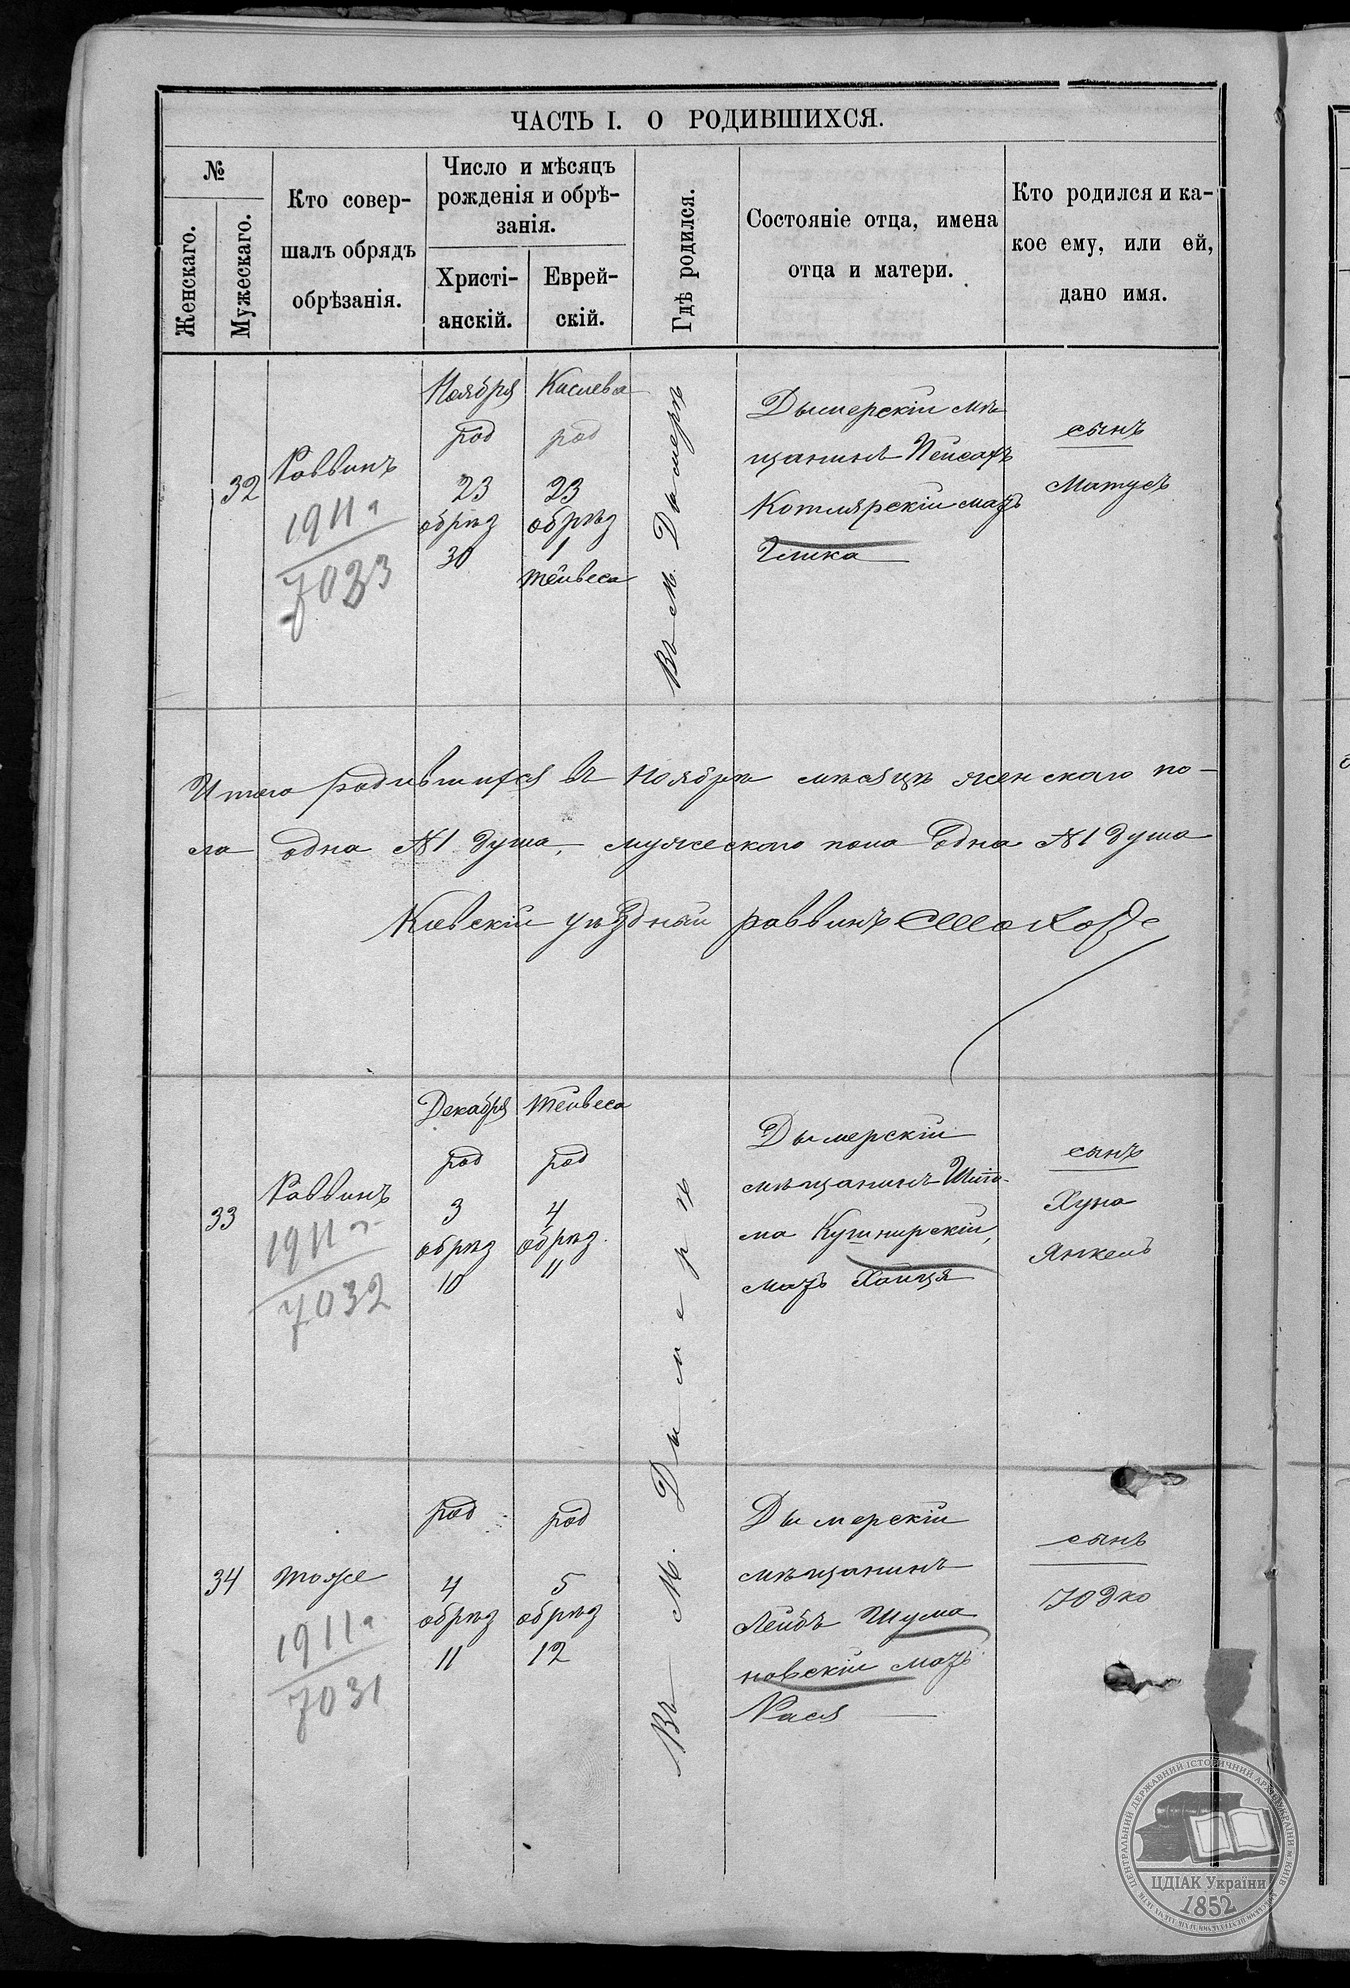 ЧАСТЬ I. О РОДИВШИХСЯ.
№
Женскаго.
Мужескаго.
Кто совер-
шалъ обрядъ
обрѣзанія.
Число и мѣсяцъ
рожденія и обрѣ-
занія.
Христі-
анскій.
Еврей-
скій.
Гдѣ родился.
Состояніе отца, имена
отца и матери.
Кто родился и ка-
кое ему, или ей,
дано имя.
32
Раввинъ
1911 г
7033
Ноября
род
23
обрѣз
30
Кислева
род
23
обрѣз
1
Тейвеса
Въ М. Дымерѣ
Дымерскій мѣ
щанинъ Пейсахъ
Котлярскій мать
сынъ
Матусъ
Итого родившихся въ Ноябрѣ мѣсяцѣ женскаго по-
ла одна №1 душа, мужескаго пола одна №1 душа
Кіевскій уѣздный раввинъ
33
Раввинъ
1911 г
7032
Декабря
род
3
обрѣз
10
Тейвеса
род
4
обрѣз
11
Въ М. Дымерѣ
Дымерскій
мѣщанинъ Шліо-
ма Кушнирскій,
мать Хайця
сынъ
Хуна
Янкель
34
тоже
1911 г
7031
род
4
обрѣз
11
род
5
обрѣз
12
Дымерскій
мѣщанинъ
Лейбъ Шума
новскій мать
Рася
сынъ
Юдко
ЦЕНТРАЛЬНИЙ ДЕРЖАВНИЙ ІСТОРИЧНИЙ АРХІВ УКРАЇНИ м. КИЇВ
ЦДІАК України
1852